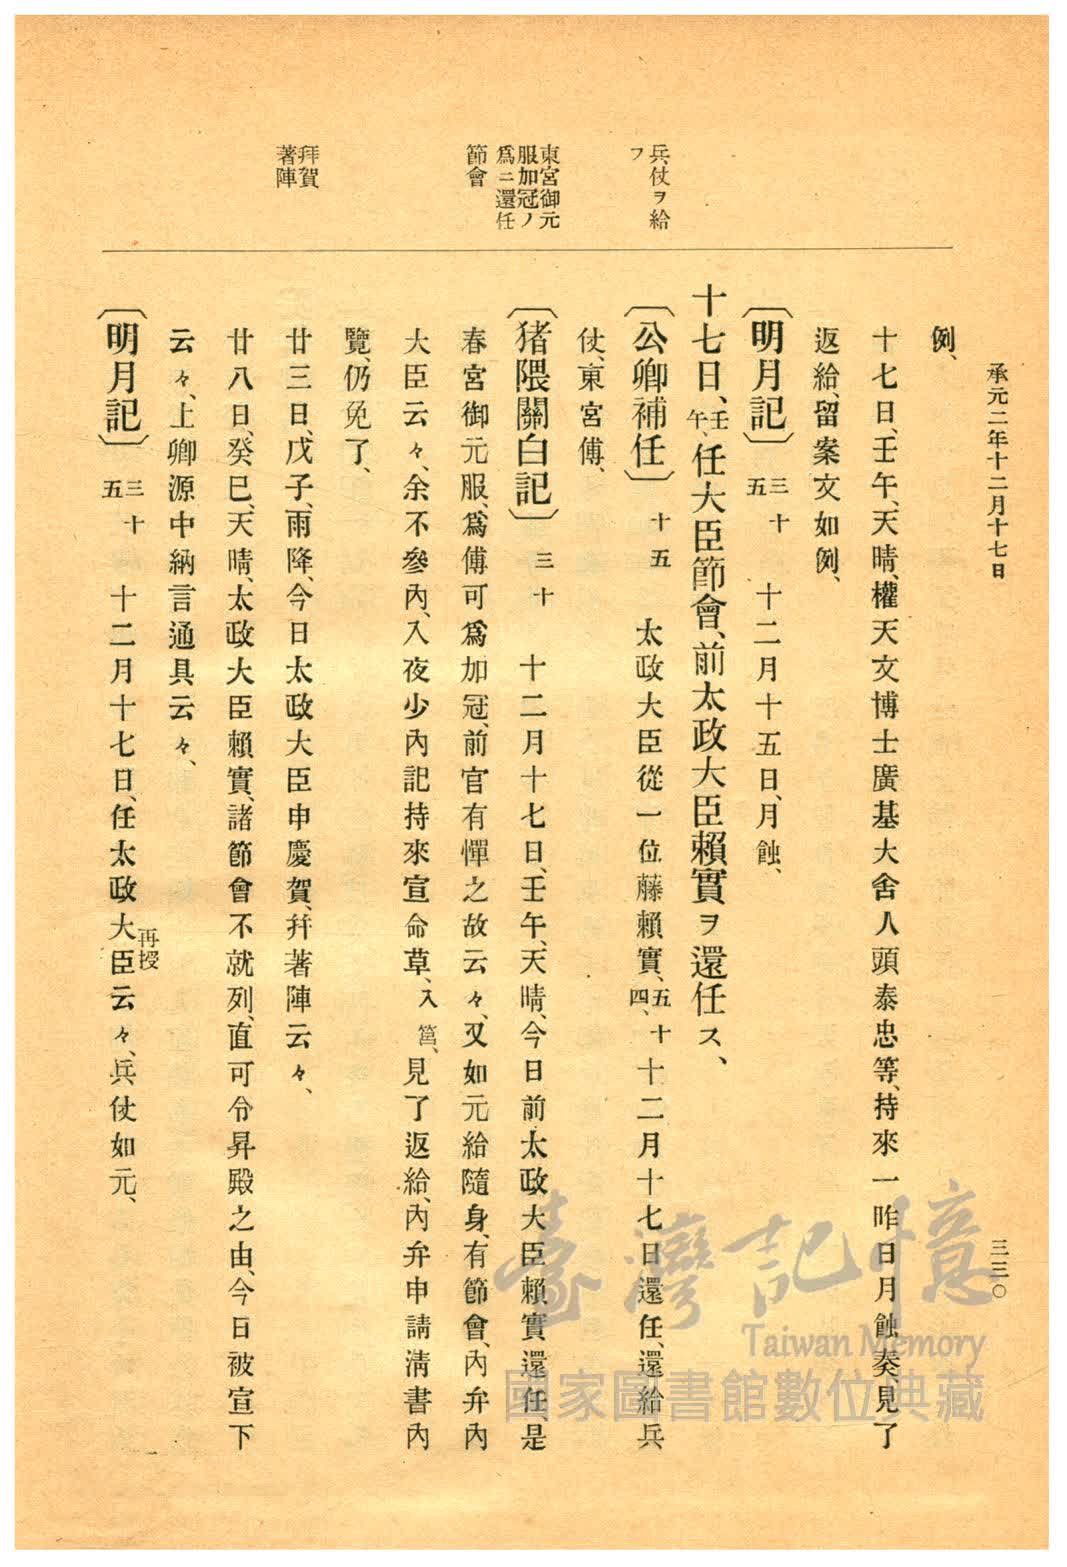 承元二年十二月十七日
三三〇
例、
十七日、壬午、天晴、權天文博士廣基大舍人頭泰忠等、持來一昨日月蝕奏見了
返給、留案文如例、
〔明月記〕三十五 十二月十五日、月蝕、
十七日、壬午、任大臣節會、前太政大臣賴實ヲ還任ス、
兵仗ヲ給
フ
〔公卿補任〕十五 太政大臣從一位藤賴實、五十四、十二月十七日還任、還給兵
仗、東宮傅、
東宮御元
服加冠ノ
爲ニ還任
節會
〔猪隈關白記〕三十 十二月十七日、壬午、天晴、今日前太政大臣賴實還任、是
春宮御元服、爲傅可爲加冠、前官有憚之故云々、又如元給隨身、有節會、內弁內
大臣云々、余不參內、入夜少內記持來宣命草、入筥、見了返給、內弁申請淸書內
覽、仍免了、
拜賀
著陣
廿三日、戊子、雨降、今日太政大臣申慶賀、幷著陣云々、
廿八日、癸巳、天晴、太政大臣賴實、諸節會不就列、直可令昇殿之由、今日被宣下
云々、上卿源中納言通具云々、
〔明月記〕三十五 十二月十七日、任太政大臣再授云々、兵仗如元、
臺灣記憶
Taiwan Memory
國家圖書館數位典藏